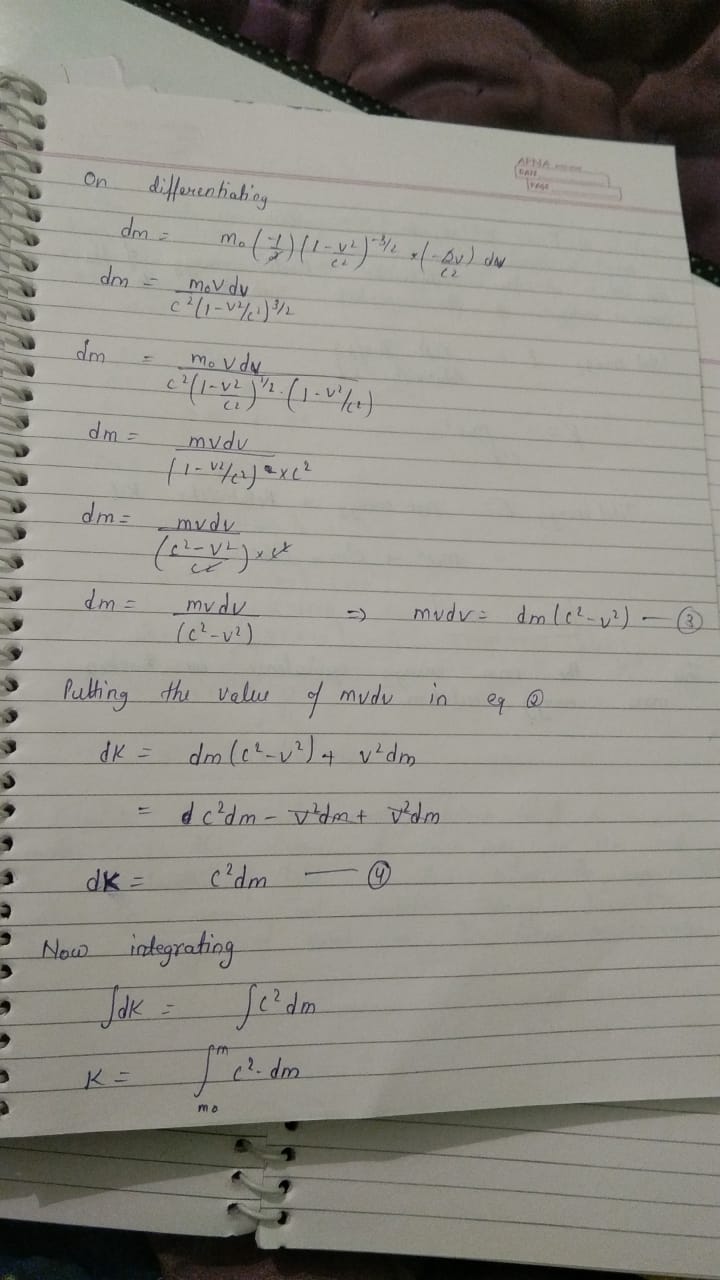 APNA
DATE
PAGE
On differentiating
dm = m₀ (-1/2) (1 - v²/c²)^-3/2 × (-2v/c²) dv
dm = m₀v dv / c²(1 - v²/c²)^3/2
dm = m₀ v dv / c²(1 - v²/c²)^1/2 · (1 - v²/c²)
dm = mvdv / (1 - v²/c²) × c²
dm = mvdv / (c² - v² / c²) × c²
dm = mvdv / (c² - v²) ⇒ mvdv = dm(c² - v²) — ③
Putting the value of mvdv in eq ②
dK = dm(c² - v²) + v²dm
= c²dm - v²dm + v²dm
dK = c²dm — ④
Now integrating
∫dK = ∫c² dm
K = ∫_m₀^m c² · dm